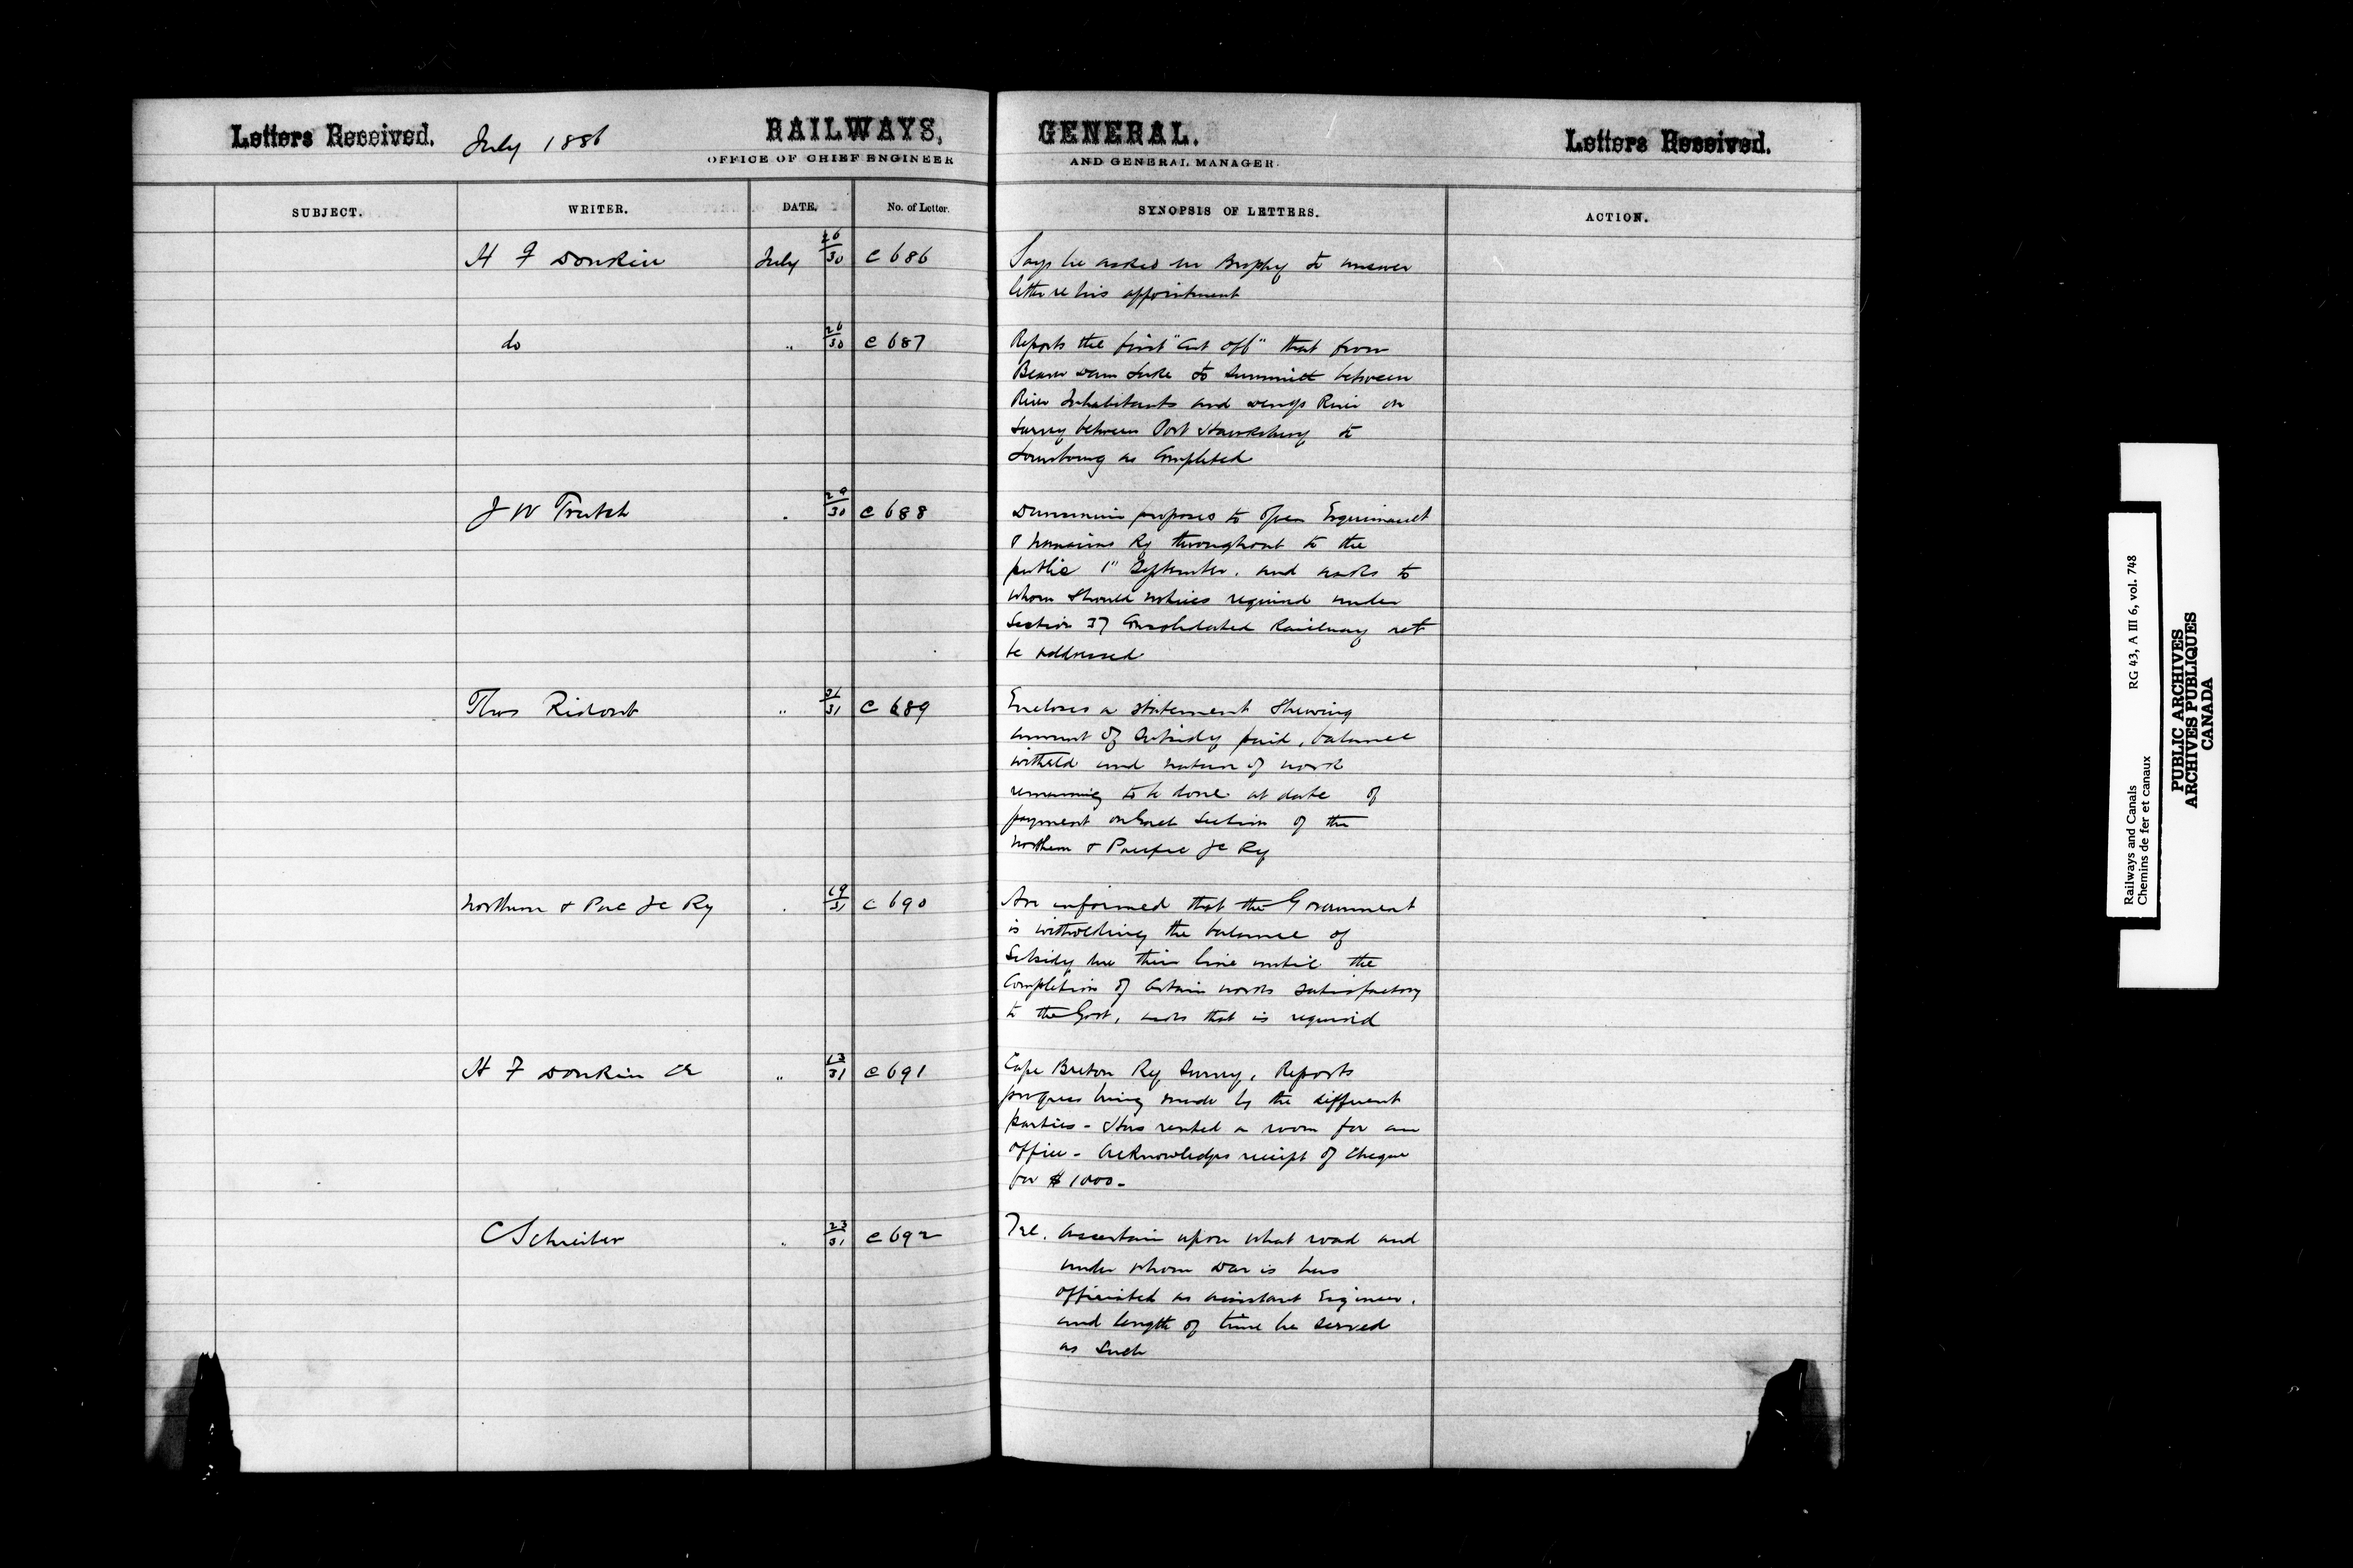 Letters Received. July 1886 RAILWAYS, GENERAL. Letters Received.
OFFICE OF CHIEF ENGINEER AND GENERAL MANAGER.
SUBJECT. WRITER. DATE. No. of Letter. SYNOPSIS OF LETTERS. ACTION.
H F Donkin July 26/30 C 686 Says he asked Mr Brophy to answer
letter re his appointment
do " 26/30 C 687 Reports the first "Cut off" that from
Beaver Dam Lake to Summit between
River Inhabitants and River on
Survey between Port Hawksbury to
Louisbourg as Completed
J W Trutch " 29/30 C 688 Dunsmuir proposes to open Esquimault
& Nanaimo Ry throughout to the
public 1" September. and asks to
whom should notices required under
Section 37 Consolidated Railway act
be addressed
Thos Ridout " 31/31 C 689 Encloses a statement shewing
amount of Subsidy paid, balance
witheld and nature of work
remaining to be done at date of
payment on each Section of the
Northern & Pacific Jc Ry
Northern & Pac Jc Ry " 19/31 C 690 Are informed that the Government
is witholding the balance of
Subsidy due their line until the
Completion of Certain works satisfactory
to the Govt, asks that is required
H F Donkin CE " 13/31 C 691 Cape Breton Ry Survey, Reports
progress being made by the different
parties - Has rented a room for an
office - Acknowledges receipt of Cheque
for $1000-
C Schreiber " 23/31 C 692 Tel. Ascertain upon what road and
under whom Davis has
officiated as assistant Engineer.
and length of time he served
as Such
Railways and Canals RG 43, A III 6, vol. 748
Chemins de fer et canaux
PUBLIC ARCHIVES
ARCHIVES PUBLIQUES
CANADA